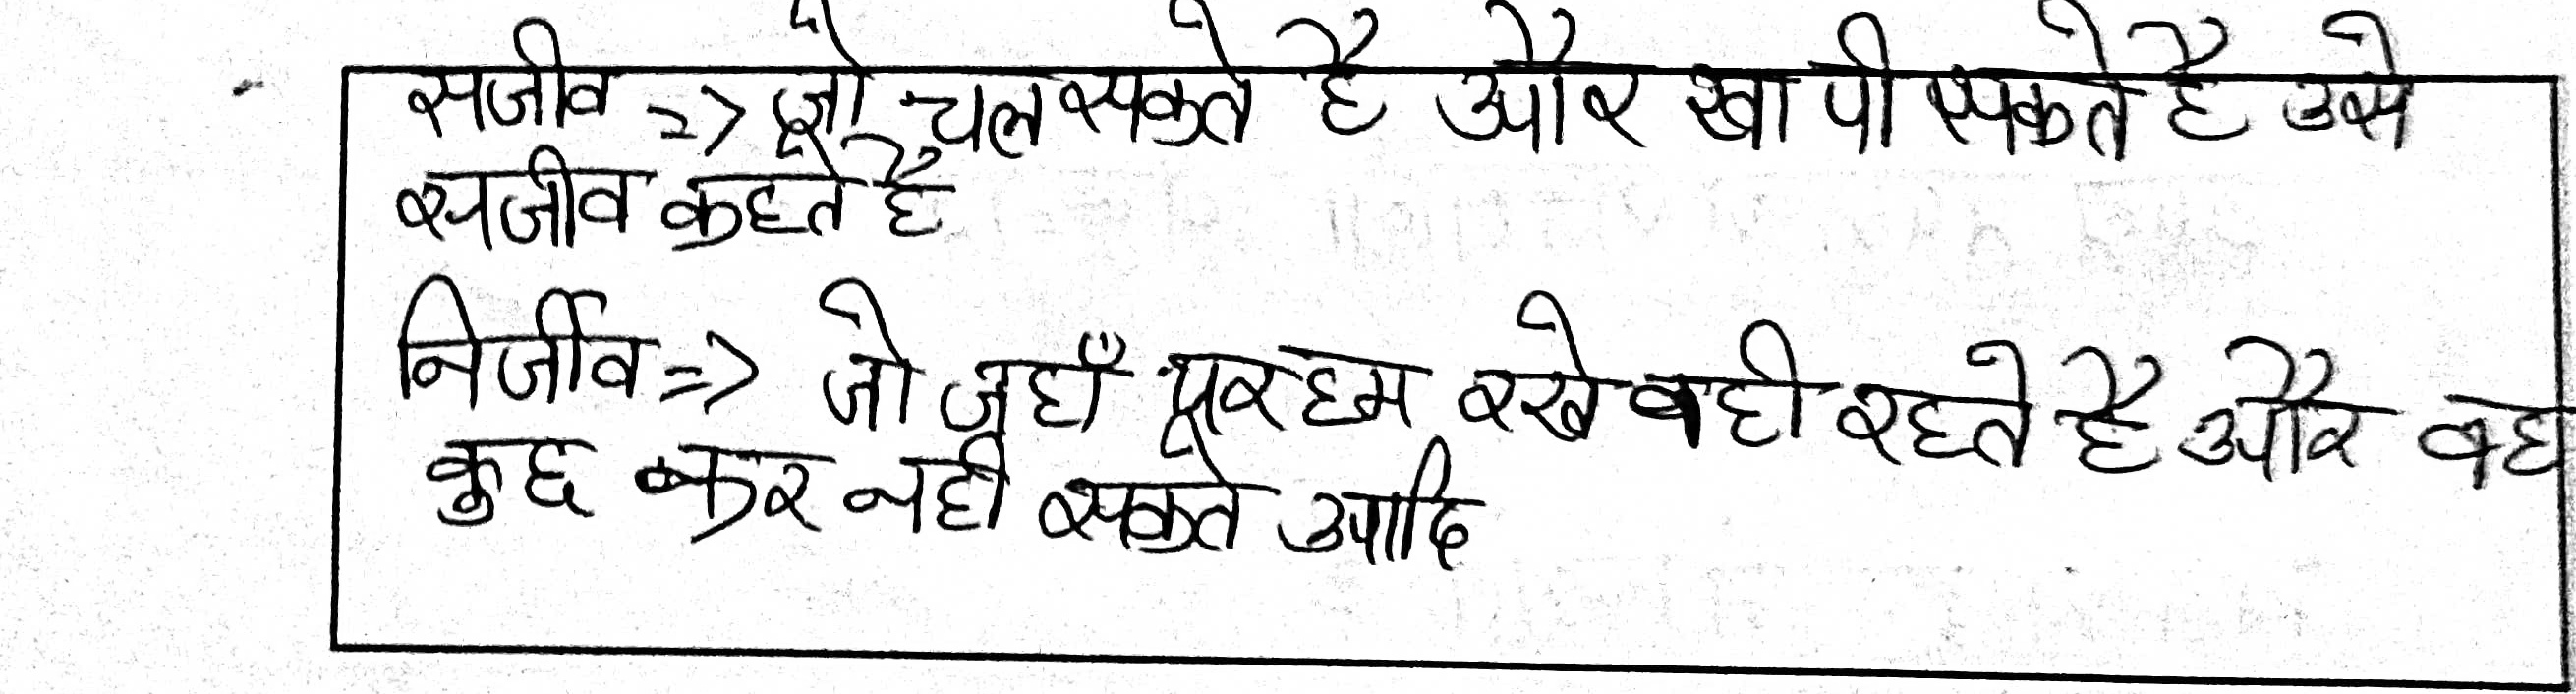 सजीव => जो चल सकते है और खा पी सकते है उसे
सजीव कहते है
निर्जीव => जो जहाँ पर हम रखे वही रहते है और वह
कुछ कर नही सकते आदि